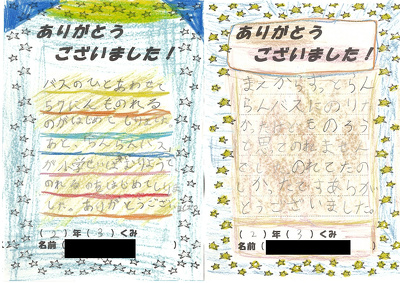 ありがとう
ございました!
バスのひとあわせて
57にんものれる
のがはじめてしりました。
あと、らんらんバス
が小学せい
のれ のもはじめてしり
した。ありがとうござい
(2)年(3)くみ
名前( )
ありがとう
ございました!
まえからずっとらん
らんバスにのりた
かった
と思 て
のれてたの
しかったですありが
とうございました。
(2)年(3)くみ
名前( )